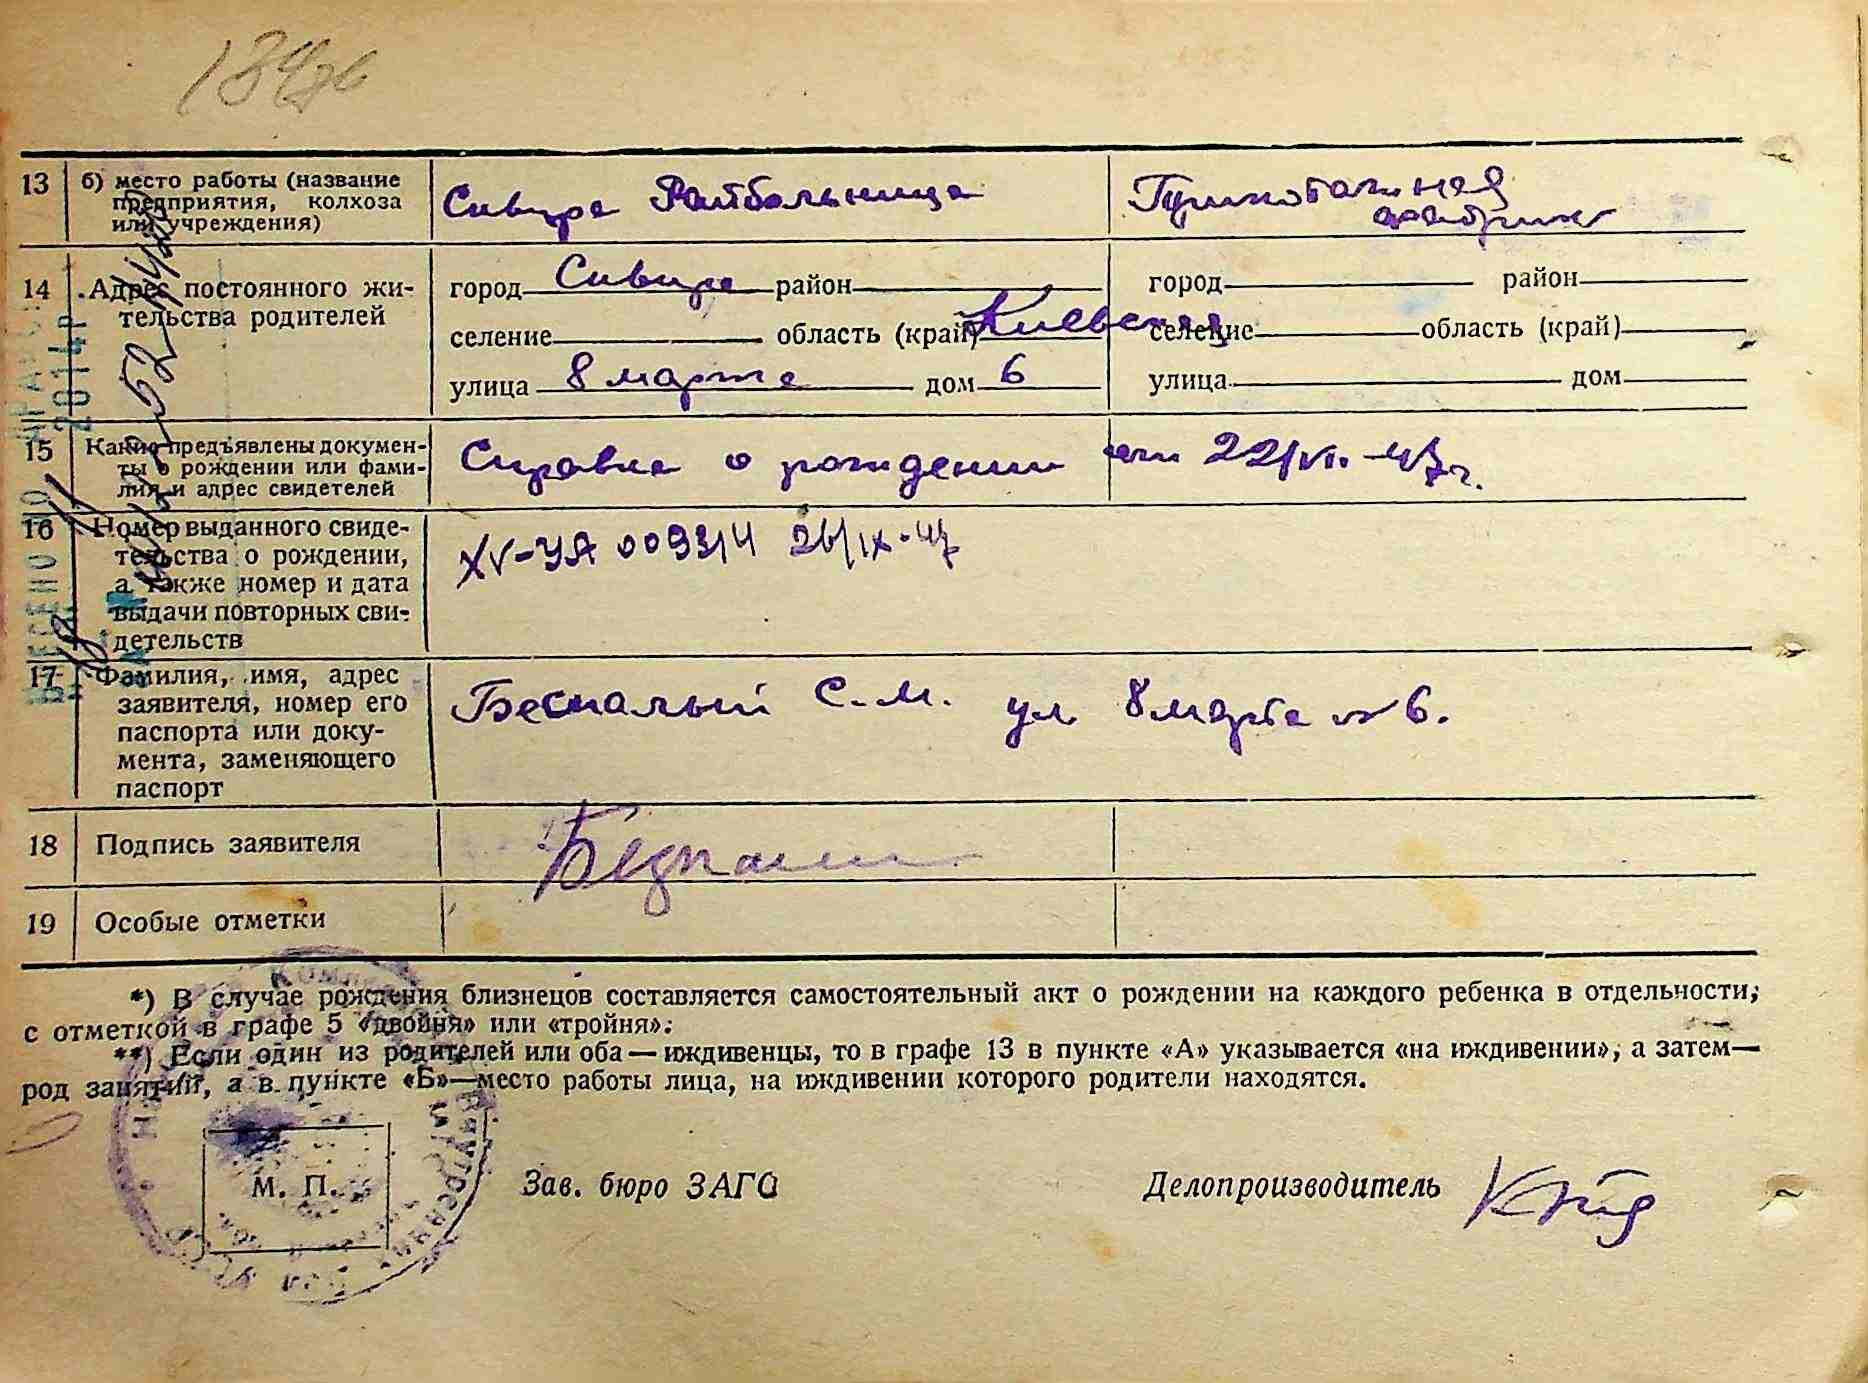 13 б) место работы (название предприятия, колхоза или учреждения)
Сквира Райбольница
фабрика
14 Адрес постоянного жительства родителей
город Сквира район город район
селение область (край) Киевская селение область (край)
улица 8 марта дом 6 улица дом
15 Какие предъявлены документы о рождении или фамилия и адрес свидетелей
Справка о рождении 22/VI-47г.
16 Номер выданного свидетельства о рождении, а также номер и дата выдачи повторных свидетельств
XV-УА 26/IX-47
17 Фамилия, имя, адрес заявителя, номер его паспорта или документа, заменяющего паспорт
Беспалый С.М. ул. 8 марта № 6.
18 Подпись заявителя
19 Особые отметки
*) В случае рождения близнецов составляется самостоятельный акт о рождении на каждого ребенка в отдельности,
с отметкой в графе 5 «двойня» или «тройня».
**) Если один из родителей или оба — иждивенцы, то в графе 13 в пункте «А» указывается «на иждивении», а затем—
род занятий, а в пункте «Б»—место работы лица, на иждивении которого родители находятся.
М. П. Зав. бюро ЗАГС Делопроизводитель
2014р